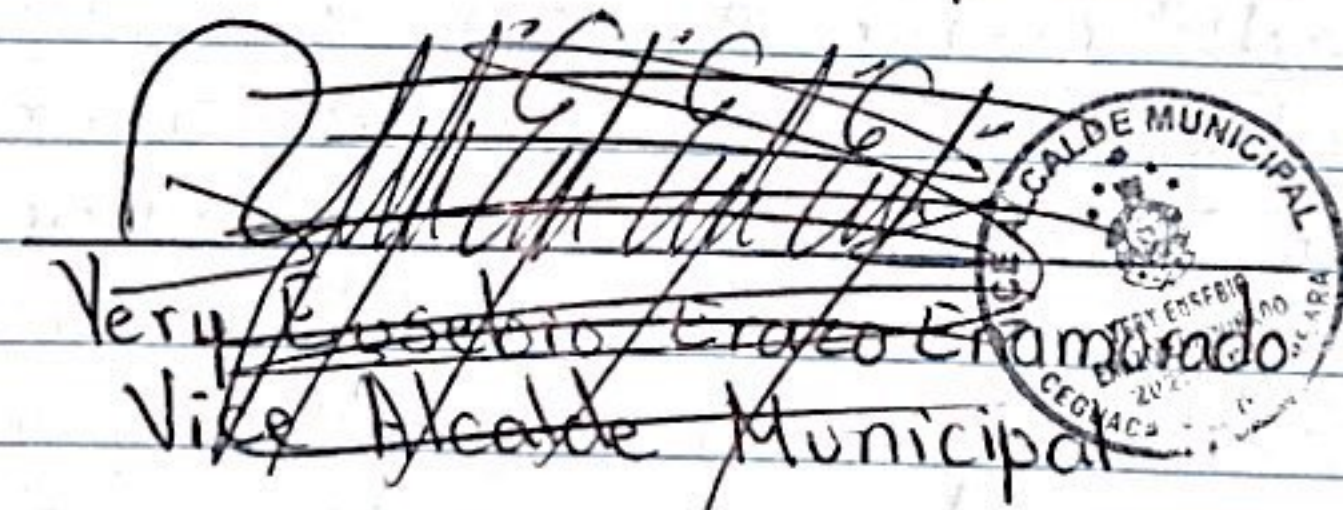 Very Eusebio Erazo Enamorado
Vice Alcalde Municipal
VICE ALCALDE MUNICIPAL
VERY EUSEBIO